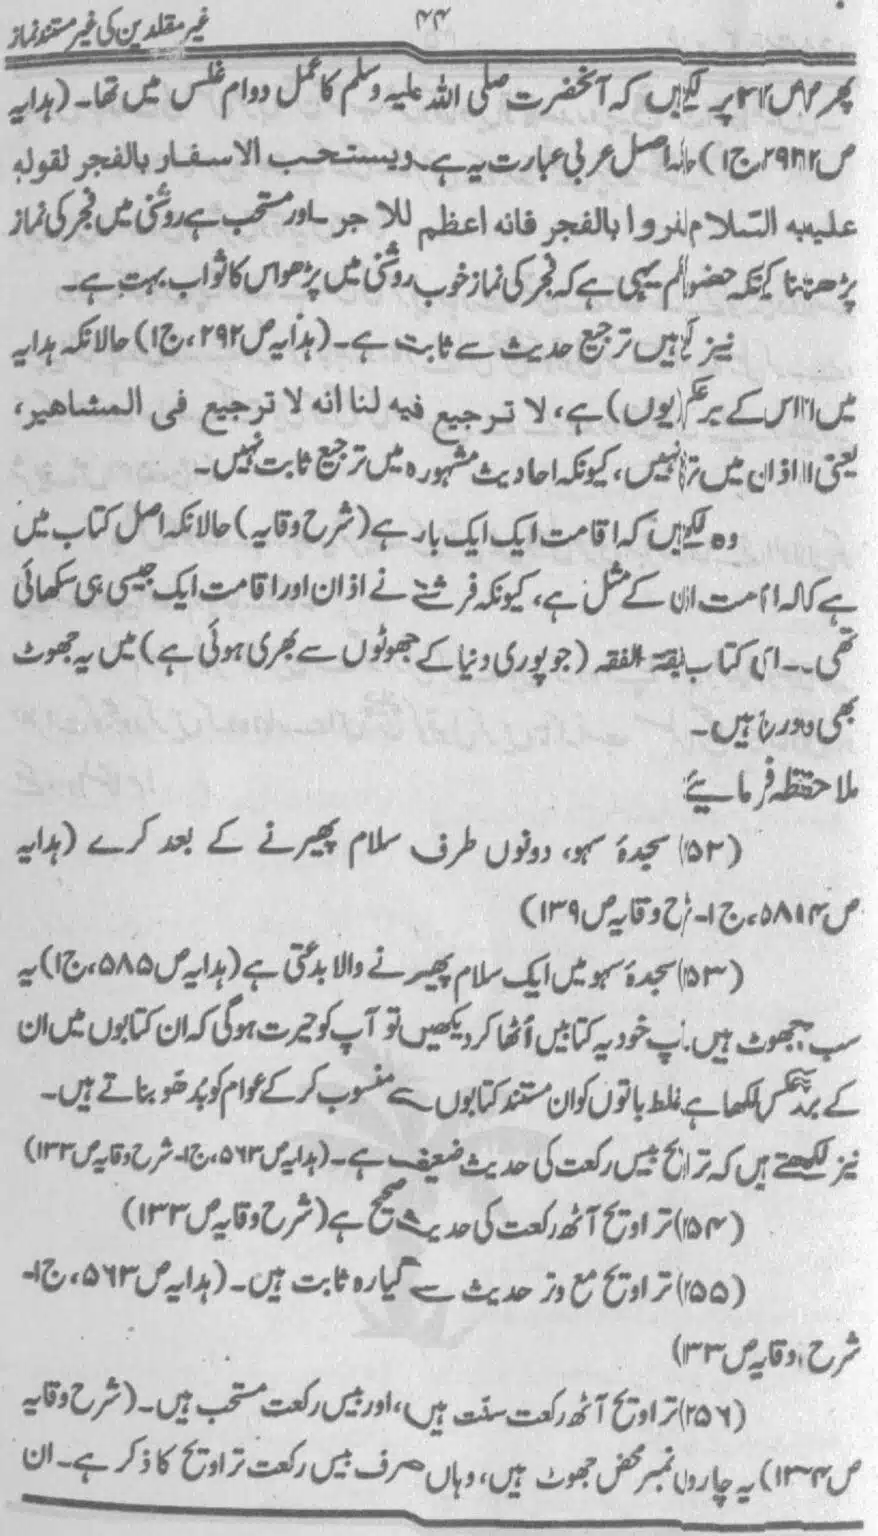 غیر مقلدین کی غیر مستند نماز
۴۴
پھر ص پر لکھیں کہ آنحضرت صلی اللہ علیہ وسلم کا عمل دوام غلس میں تھا۔ (ہدایہ
ج۱) اصل عربی عبارت یہ ہے۔ ویستحب الاسفار بالفجر لقولہ
علیہ السلام بالفجر فانہ اعظم للاجر۔ اور مستحب ہے روشنی میں فجر کی نماز
پڑھنا کہ فجر کی نماز خوب روشنی میں پڑھو اس کا ثواب بہت ہے۔
نیز ترجیع حدیث سے ثابت ہے۔ (ہدایہ ص۲۹۲، ج۱) حالانکہ ہدایہ
میں اس کے (یوں) ہے، لا ترجیع فیہ لنا انہ لا ترجیع فی المشاھیر،
یعنی اذان میں نہیں، کیونکہ احادیث مشہورہ میں ترجیع ثابت نہیں۔
وہ کہ اقامت ایک ایک بار ہے (شرح وقایہ) حالانکہ اصل کتاب میں
ہے کے مثل ہے، کیونکہ فرشتے نے اذان اور اقامت ایک جیسی ہی سکھائی
تھی۔۔ کتاب الفقہ (جو پوری دنیا کے جھوٹوں سے بھری ہوئی ہے) میں یہ جھوٹ
بھی ہیں۔
ملاحظہ فرمائیے
(۲۵۲) سجدۂ سہو، دونوں طرف سلام پھیرنے کے بعد کرے (ہدایہ
ج۱۔ شرح وقایہ ص۱۳۹)
(۲۵۳) سجدۂ سہو میں ایک سلام پھیرنے والا بدعتی ہے (ہدایہ ص۵۸۵، ج۱) یہ
سب جھوٹ ہیں۔ آپ خود یہ کتابیں اُٹھا کر دیکھیں تو آپ کو حیرت ہوگی کہ ان کتابوں میں ان
کے برعکس لکھا ہے غلط باتوں کو ان مستند کتابوں سے منسوب کر کے عوام کو بُدھو بناتے ہیں۔
نیز لکھتے ہیں کہ تراویح بیس رکعت کی حدیث ضعیف ہے۔ (ہدایہ ص۵۶۳، ج۱۔ شرح وقایہ ص۱۳۳)
(۲۵۴) تراویح آٹھ رکعت کی حدیث صحیح ہے (شرح وقایہ ص۱۳۳)
(۲۵۵) تراویح مع وتر حدیث سے گیارہ ثابت ہیں۔ (ہدایہ ص۵۶۳، ج۱۔
شرح وقایہ ص۱۳۳)
(۲۵۶) تراویح آٹھ رکعت سنت ہیں، اور بیس رکعت مستحب ہیں۔ (شرح وقایہ
ص۱۳۴) یہ چاروں نمبر محض جھوٹ ہیں، وہاں صرف بیس رکعت تراویح کا ذکر ہے۔ ان